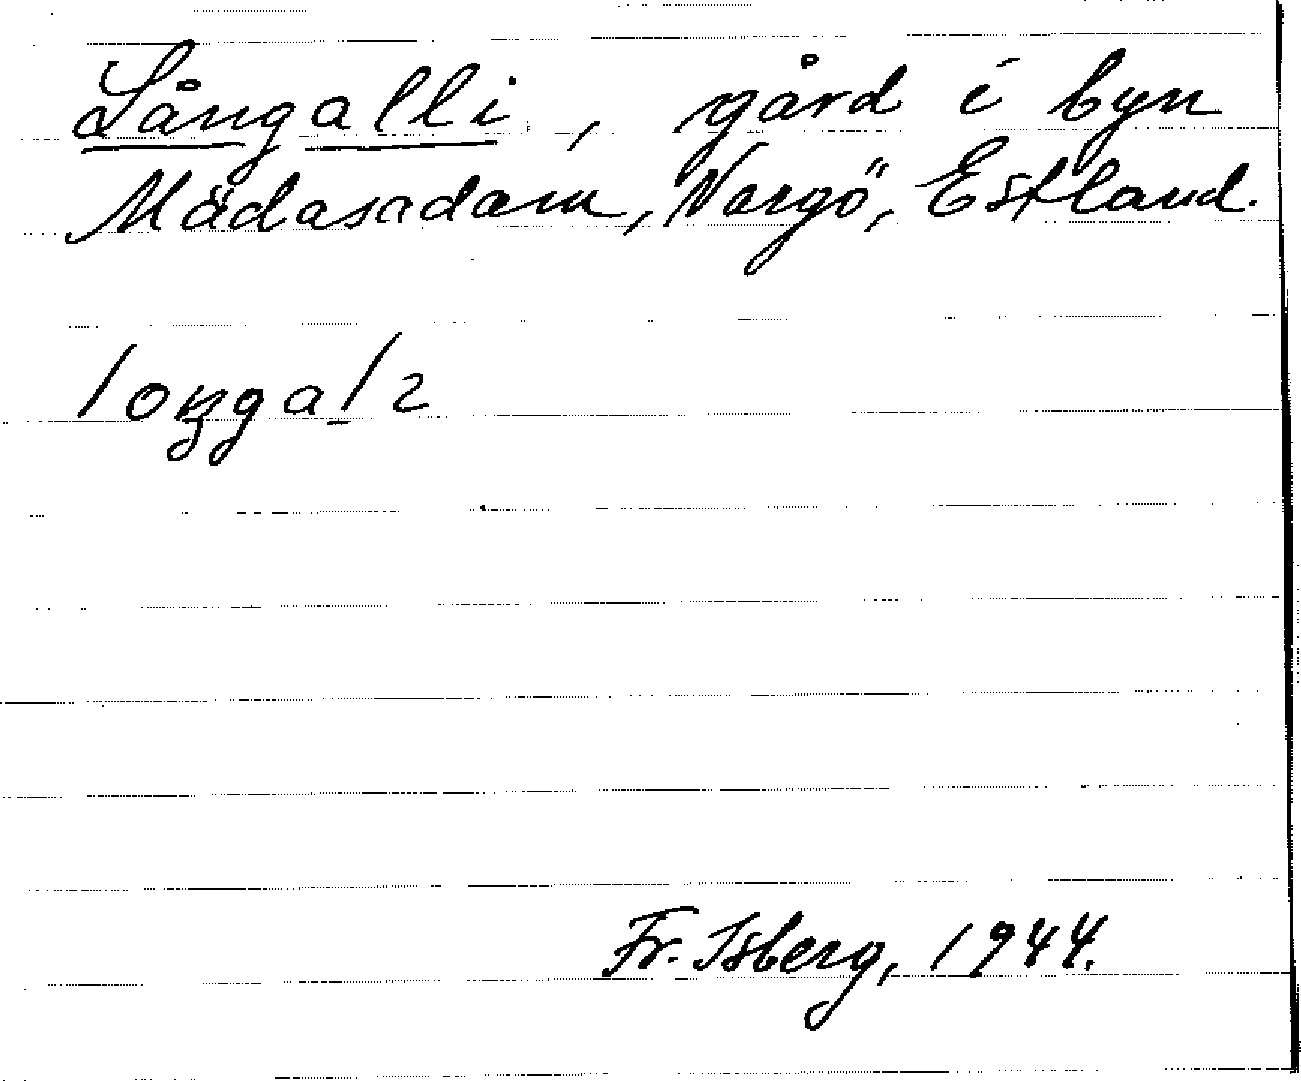 Långalli, gård i byn
Mädasadam, Nargö, Estland.
loŋgal̲ɩ
Fr. Isberg, 1944.